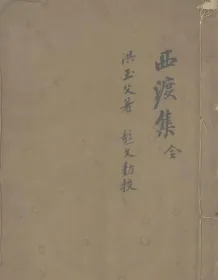 西渡集 全
洪玉父著 彭文勤校